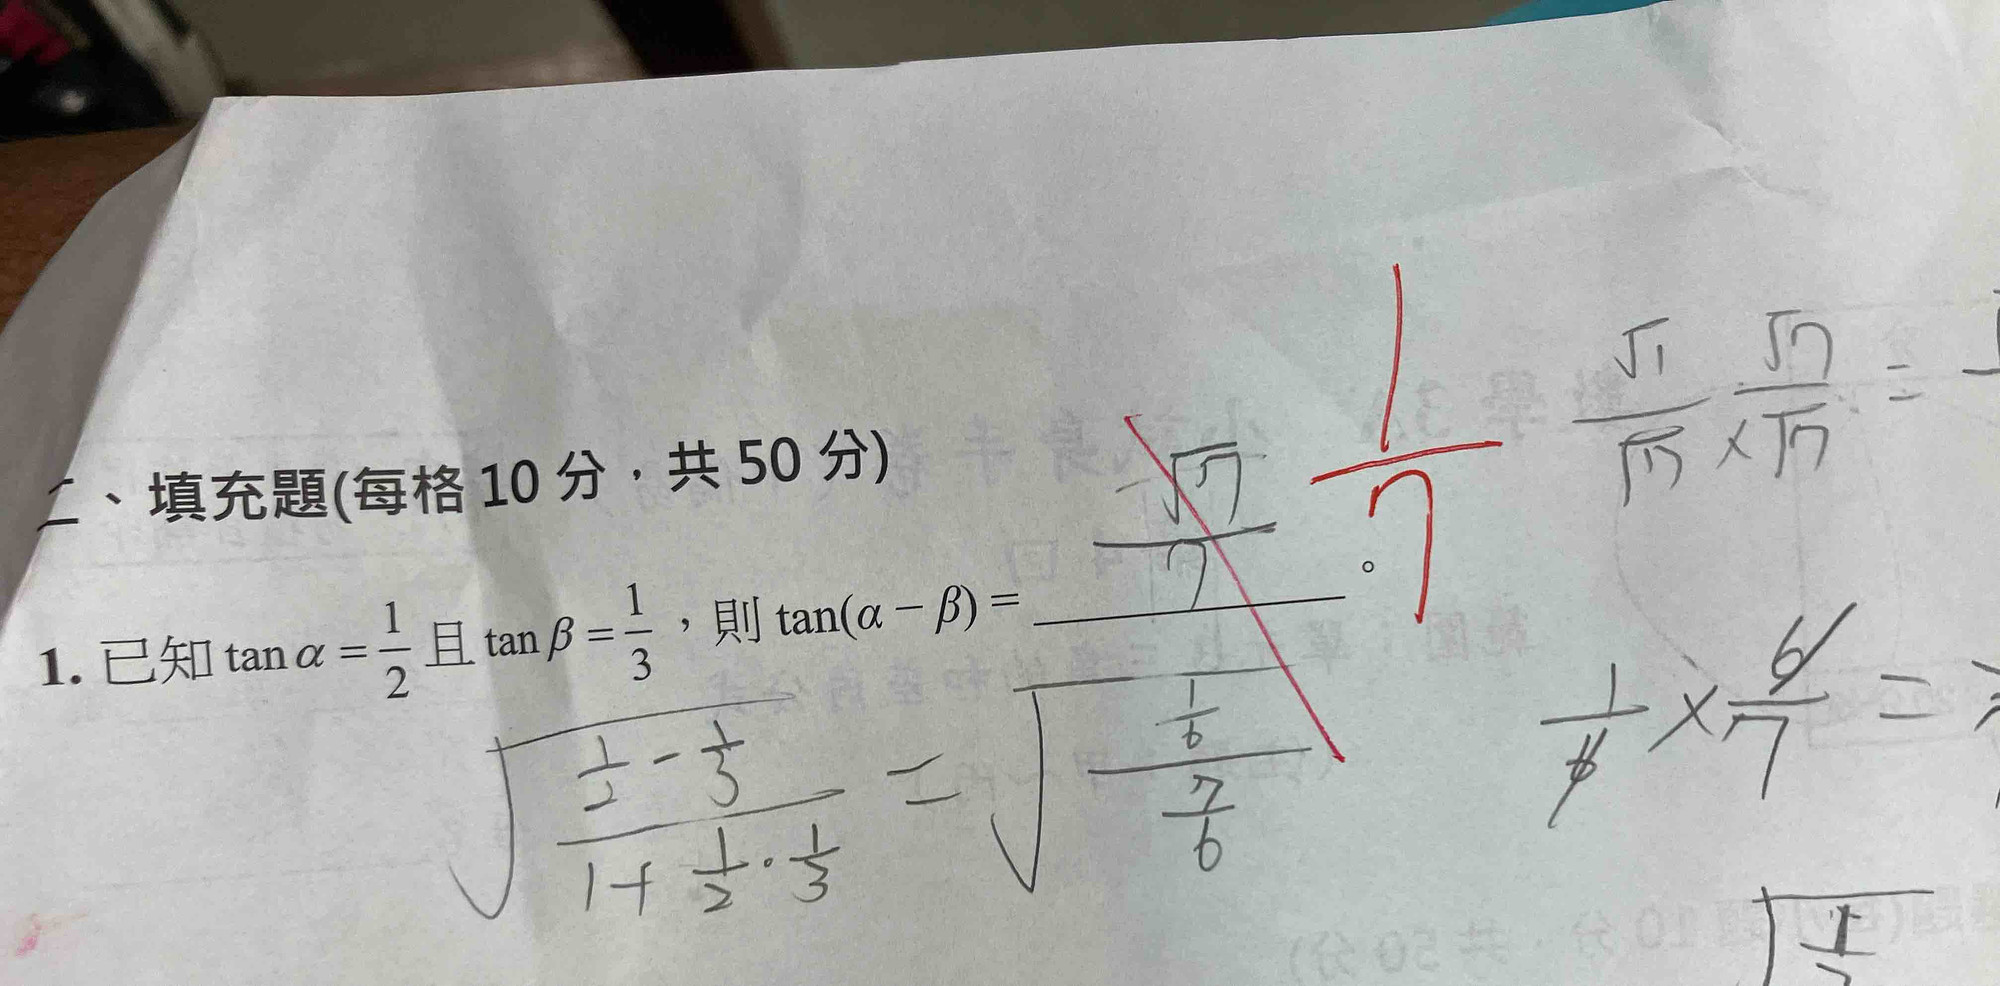 二、填充題(每格 10 分，共 50 分)
1. 已知 tan α = 1/2 且 tan β = 1/3 ，則 tan(α − β) = -√7/7 。
1/7
√((1/2 - 1/3)/(1+1/2·1/3)) = √((1/6)/(7/6))
√1/√7 × √7/√7 =
1/6 × 6/7 =